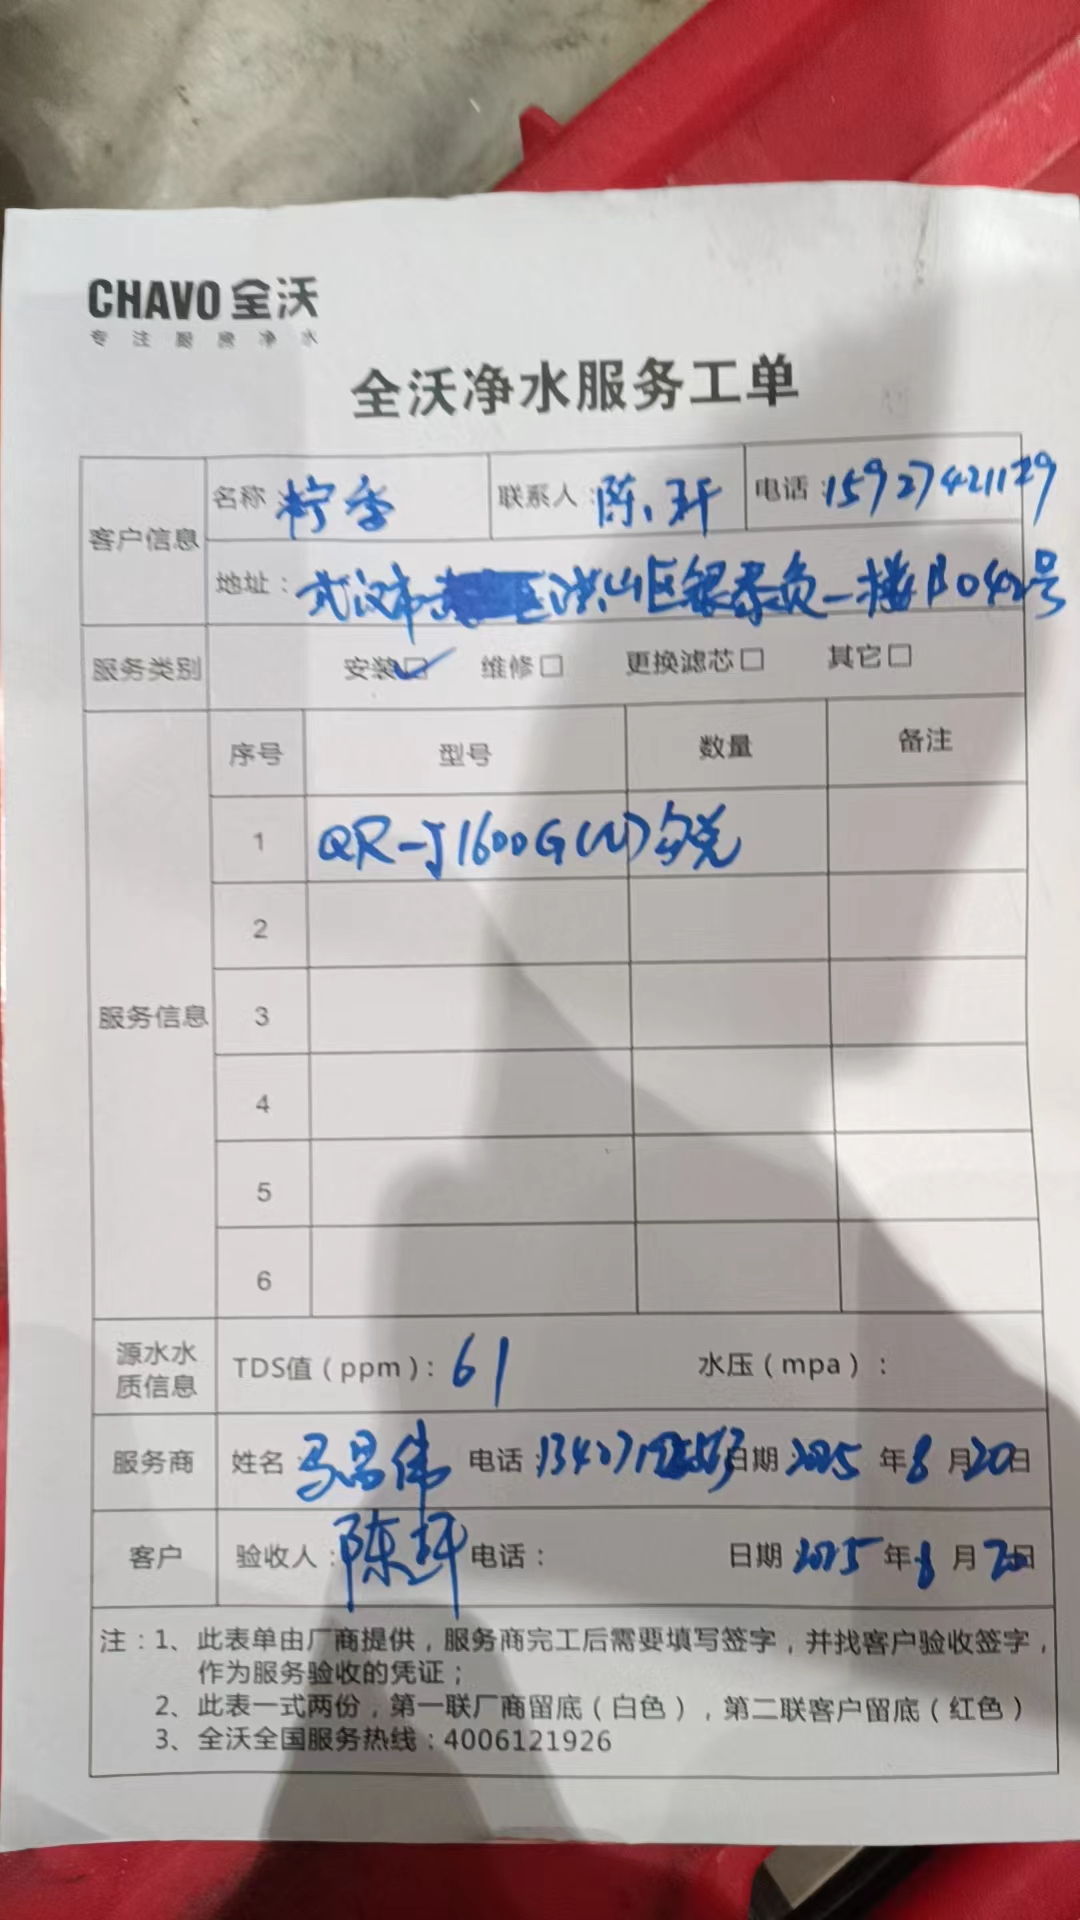 CHAVO 全沃
专注厨房净水
全沃净水服务工单
客户信息 名称：柠季 联系人：陈 电话：
地址：武汉市 洪山区银泰负一楼B042号
服务类别 安装☑ 维修□ 更换滤芯□ 其它□
服务信息 序号 型号 数量 备注
1 QR-J1600G(N)
2
3
4
5
6
源水水质信息 TDS值（ppm）：61 水压（mpa）：
服务商 姓名：马昌伟 电话： 日期：2025年8月20日
客户 验收人：陈 电话： 日期 2025年8月20日
注：1、此表单由厂商提供，服务商完工后需要填写签字，并找客户验收签字，
作为服务验收的凭证；
2、此表一式两份，第一联厂商留底（白色），第二联客户留底（红色）
3、全沃全国服务热线：4006121926